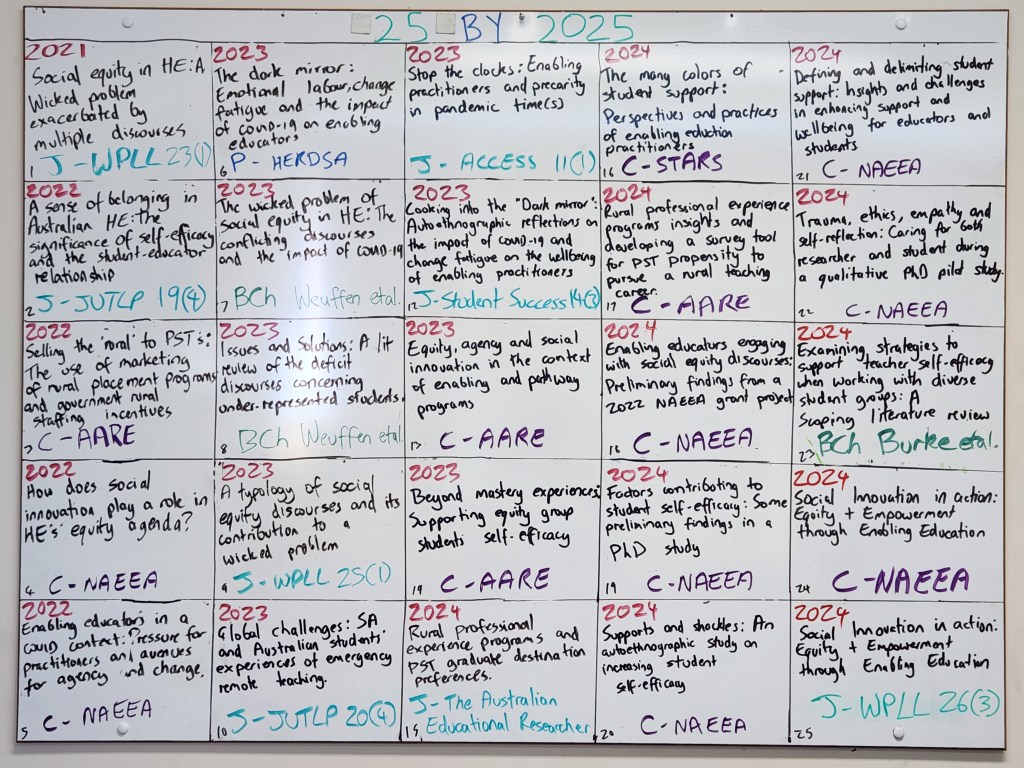 25 BY 2025
2021
Social equity in HE: A
Wicked problem
exacerbated by
multiple discourses
1 J-WPLL 23(1)
2022
A sense of belonging in
Australian HE: The
significance of self-efficacy
and the student-educator
relationship
2 J-JUTLP 19(4)
2022
Selling the "rural" to PST's:
The use of marketing
of rural placement programs
and government rural
staffing incentives
3 C-AARE
2022
How does social
innovation play a role in
HE's equity agenda?
4 C-NAEEA
2022
Enabling educators in a
COVID context: Pressure for
practitioners and avenues
for agency and change.
5 C-NAEEA
2023
The dark mirror:
Emotional labour, change
fatigue and the impact
of COVID-19 on enabling
educators
6 P-HERDSA
2023
The wicked problem of
social equity in HE: The
conflicting discourses
and the impact of COVID-19
7 BCh Weuffen etal.
2023
Issues and Solutions: A lit
review of the deficit
discourses concerning
under-represented students.
8 BCh Weuffen etal.
2023
A typology of social
equity discourses and its
contribution to a
wicked problem
9 J-WPLL 25(1)
2023
Global challenges: SA
and Australian students'
experiences of emergency
remote teaching.
10 J-JUTLP 20(4)
2023
Stop the clocks: Enabling
practitioners and precarity
in pandemic time(s)
J-ACCESS 11(1)
2023
Looking into the "Dark mirror":
Autoethnographic reflections on
the impact of COVID-19 and
change fatigue on the wellbeing
of enabling practitioners
12 J-Student Success 14(3)
2023
Equity, agency and social
innovation in the context
of enabling and pathway
programs
13 C-AARE
2023
Beyond mastery experiences:
Supporting equity group
students' self-efficacy
14 C-AARE
2024
Rural professional
experience programs and
PST graduate destination
preferences.
15 J-The Australian
Educational Researcher
2024
The many colors of
student support:
Perspectives and practices
of enabling eduction
practitioners
16 C-STARS
2024
Rural professional experience
programs insights and
developing a survey tool
for PST propensity to
pursue a rural teaching
career.
17 C-AARE
2024
Enabling educators engaging
with social equity discourses:
Preliminary findings from a
2022 NAEEA grant project
18 C-NAEEA
2024
Factors contributing to
student self-efficacy: Some
preliminary findings in a
PhD study
19 C-NAEEA
2024
Supports and shockles: An
autoethnographic study on
increasing student
self-efficacy
20 C-NAEEA
2024
Defining and delimiting student
support: Insights and challenges
in enhancing support and
wellbeing for educators and
students
21 C-NAEEA
2024
Trauma, ethics, empathy and
self-reflection: Caring for both
researcher and student during
a qualitative PhD pilot study.
22 C-NAEEA
2024
Examining strategies to
support teacher self-efficacy
when working with diverse
student groups: A
Scoping literature review
23 BCh Burke etal.
2024
Social Innovation in action:
Equity + Empowerment
through Enabling Education
24 C-NAEEA
2024
Social Innovation in action:
Equity + Empowerment
through Enabling Education
25 J-WPLL 26(3)